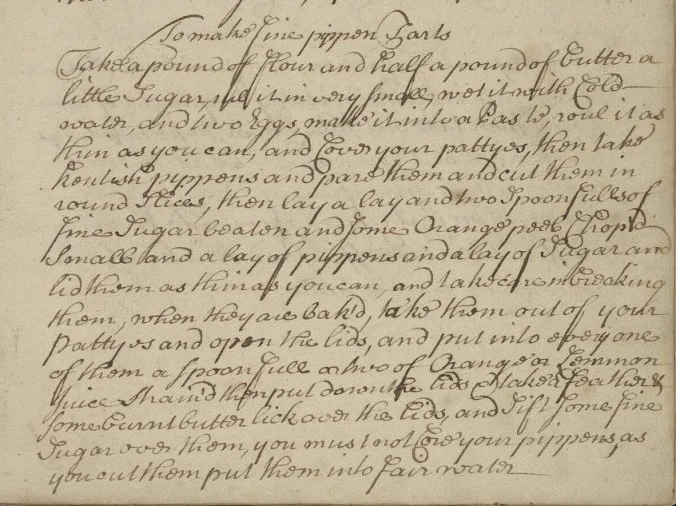 To make fine pippen Tarts
Take a pound of flour and half a pound of butter a
little Sugar, rub it in very small, wet it with Cold
water, and two Eggs, make it into a Paste, roul it as
thin as you can, and Cover your pattyes, then take
Kentish pippens and pare them and cut them in
round Slices, then lay a lay and two Spoonfulls of
fine Sugar beaten and some Orange peel Chop'd
Small and a lay of pippens and a lay of Sugar and
lid them as thin as you can, and take care in breaking
them, when they are bak'd, take them out of your
Pattyes and open the lids, and put into every one
of them a Spoon full or two of Orange or Lemmon
juice Straind then put down the lids & take a feather &
some burnt butter lick over the lids, and Sift Some fine
Sugar over them, you must not Core your pippens, as
you cut them put them into fair water